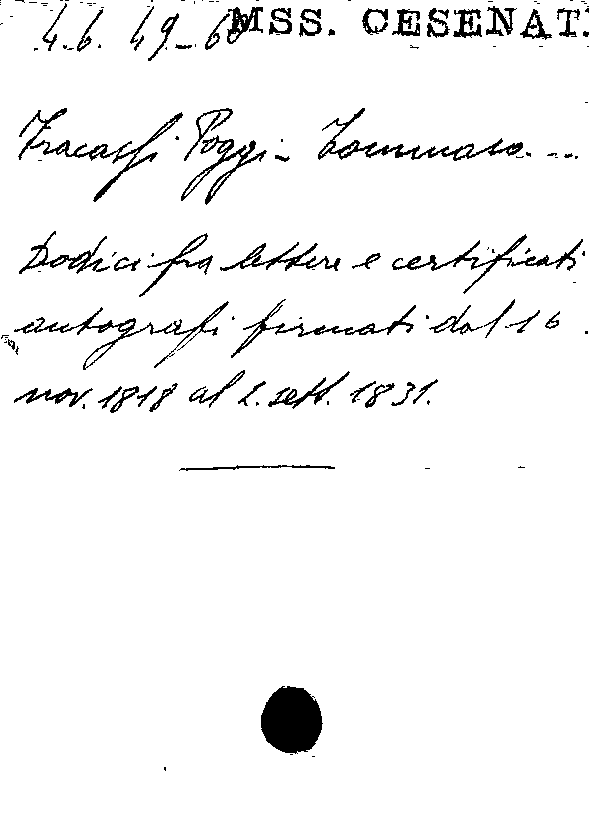 4.6. 49-60 MSS. CESENAT.
Fracassi Poggi - Tommaso. --
Dodici fra lettere e certificati
autografi firmati dal 16
nov. 1818 al 2. sett. 1831.